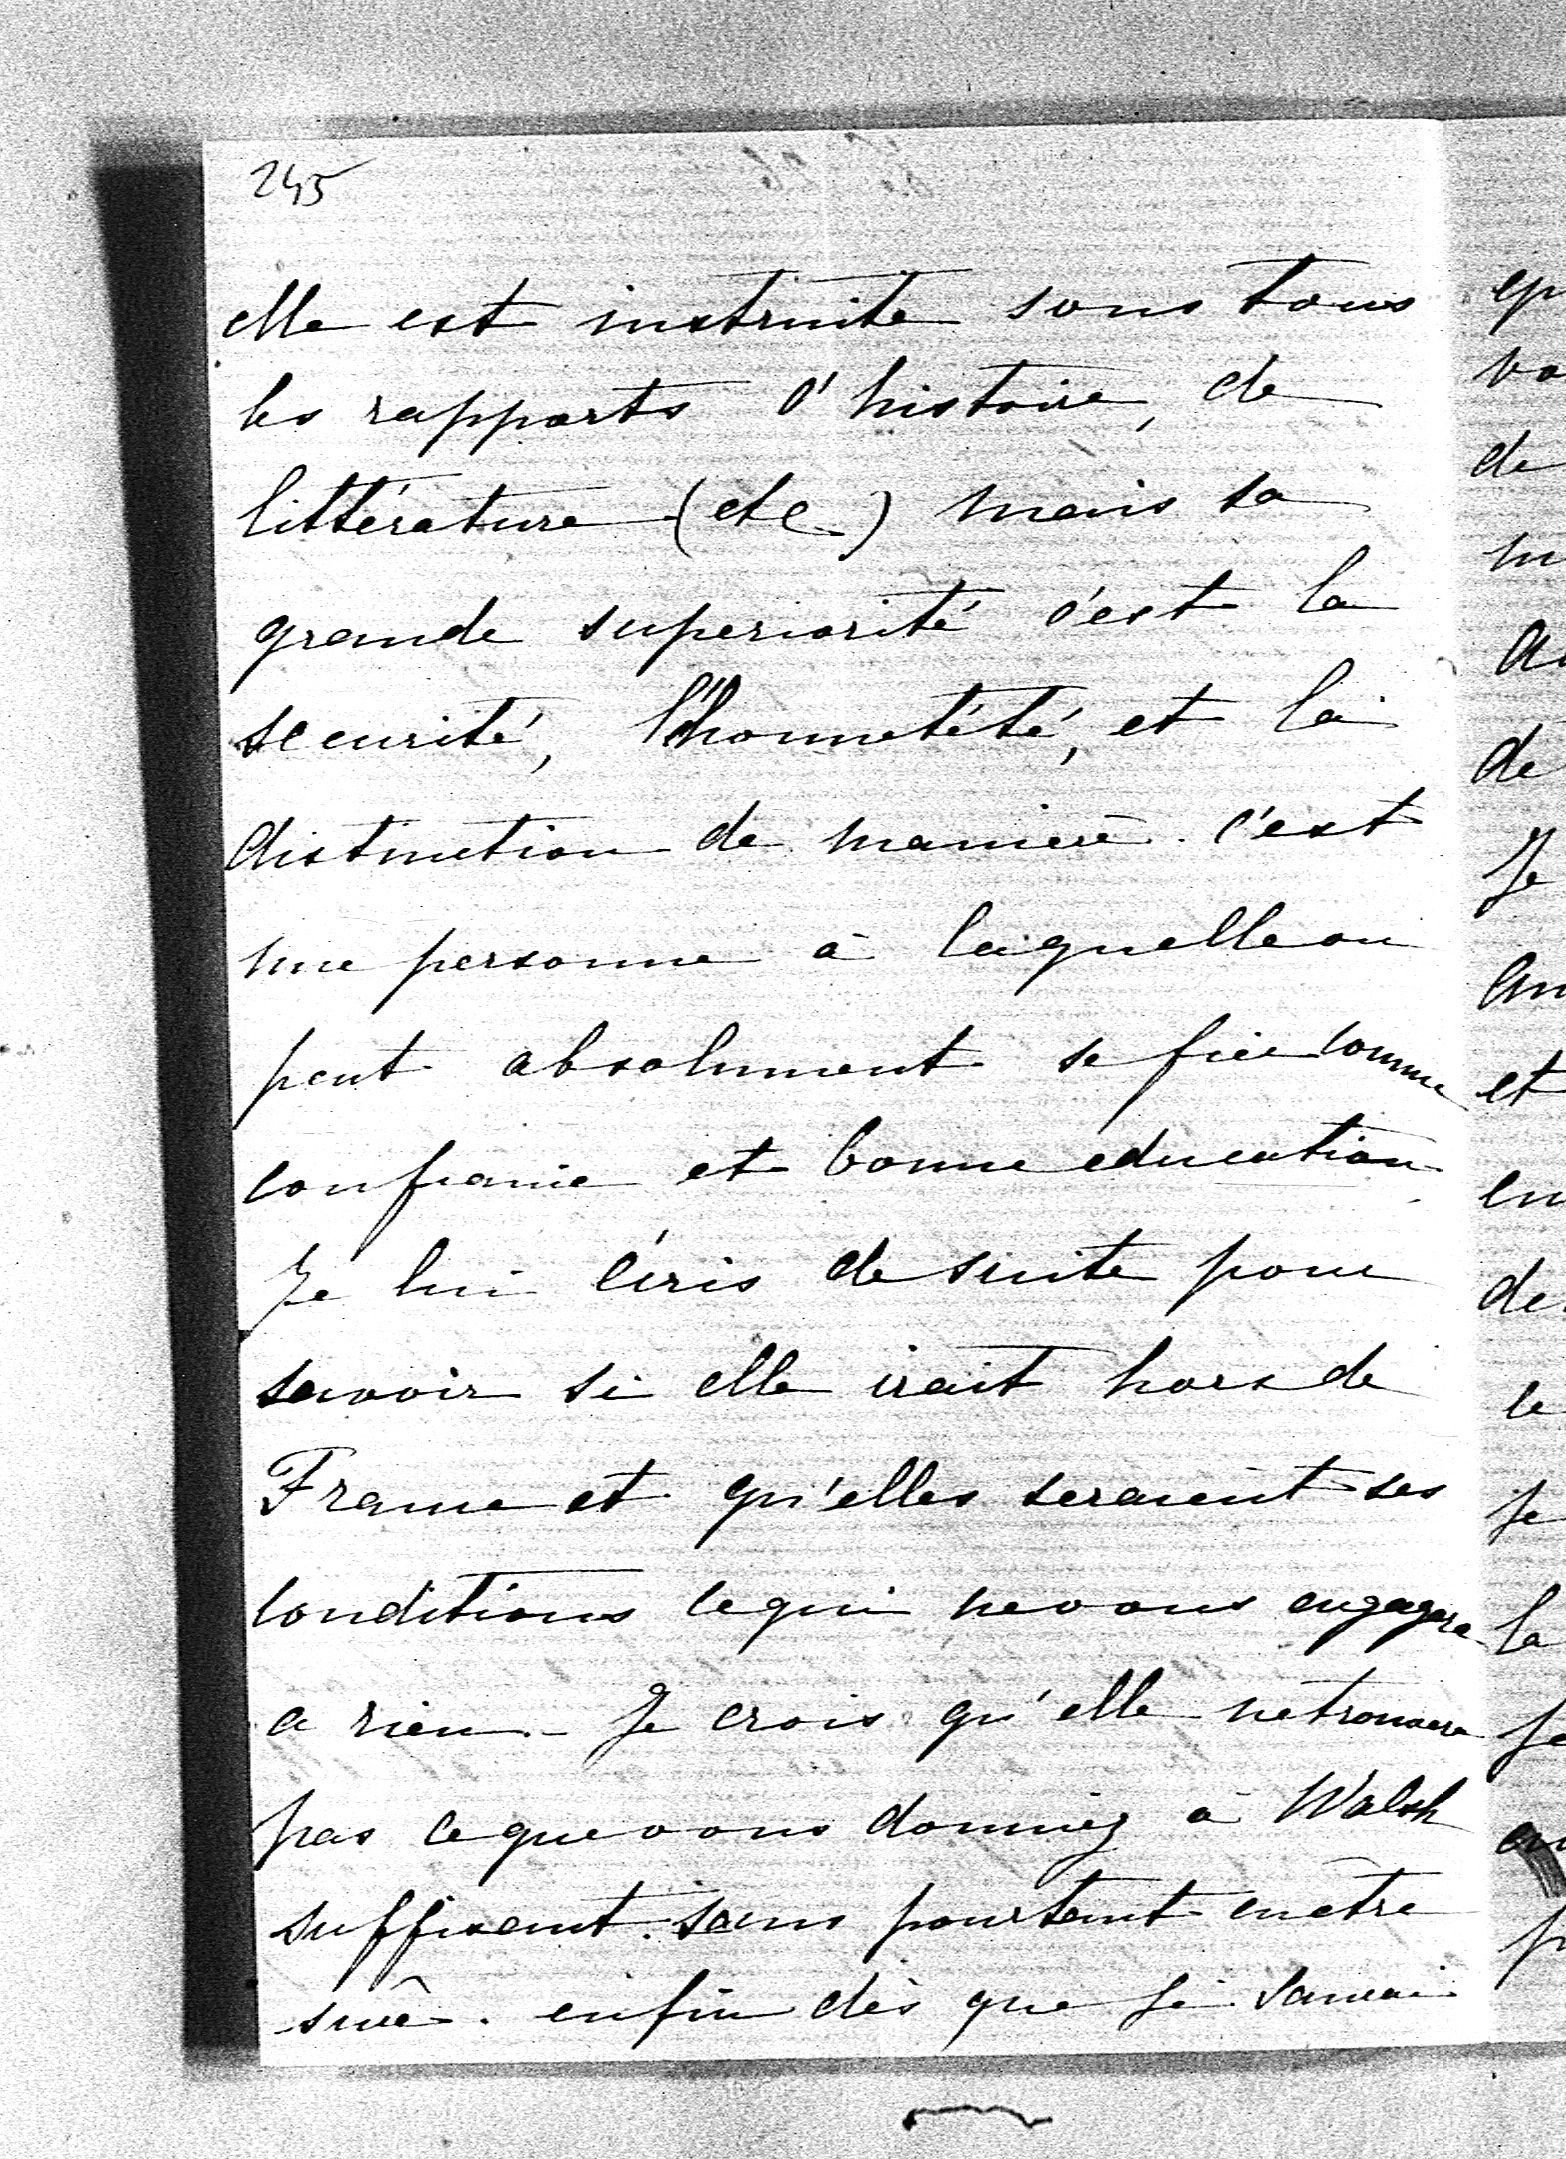 245
elle est instruite sous tous
les rapports d'histoire, de
littérature (etc) mais sa
grande superiorité c'est la
securité, l'honnetété, et la
distinction de maniere. c'est
une personne à laquelle on
peut absolument se fier comme
confiance et bonne education.
Je lui écris de suite pour
savoir si elle irait hors de
France et qu'elles seraient ses
conditions ce qui ne vous engagera
a rien. - Je crois qu'elle ne trouvera
pas ce que vous donniez à Walsh
suffisant. sans pourtant en être
sure. enfin dès que je saurai